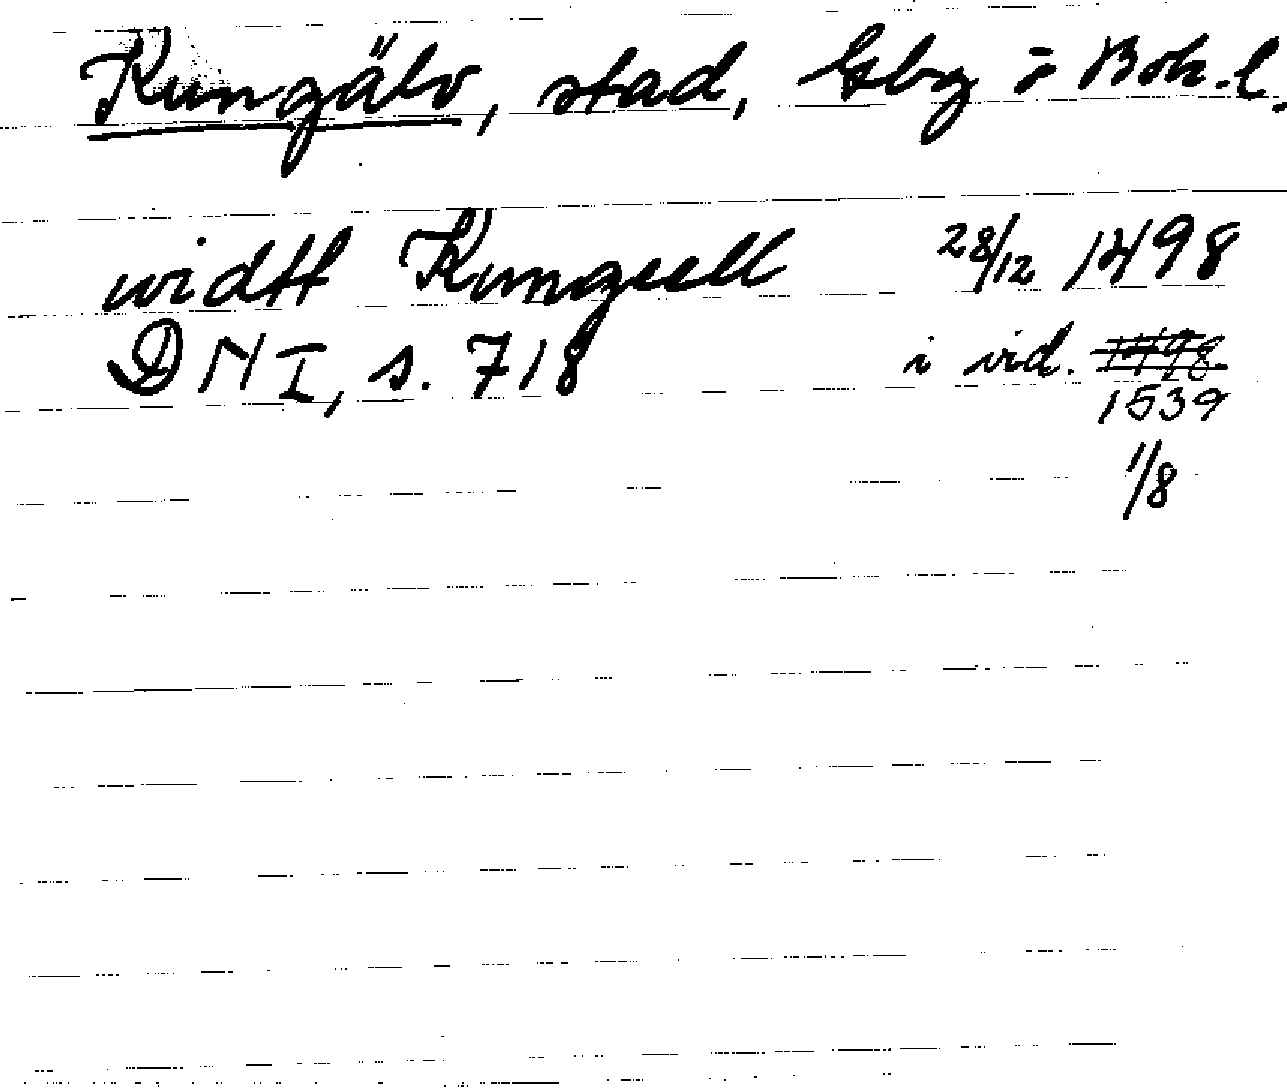 Kungälv, stad, Gbg o Boh. l.
widtt Kungxell 28/12 1498
DN I, s. 718 i vid. 1498
1539
1/8